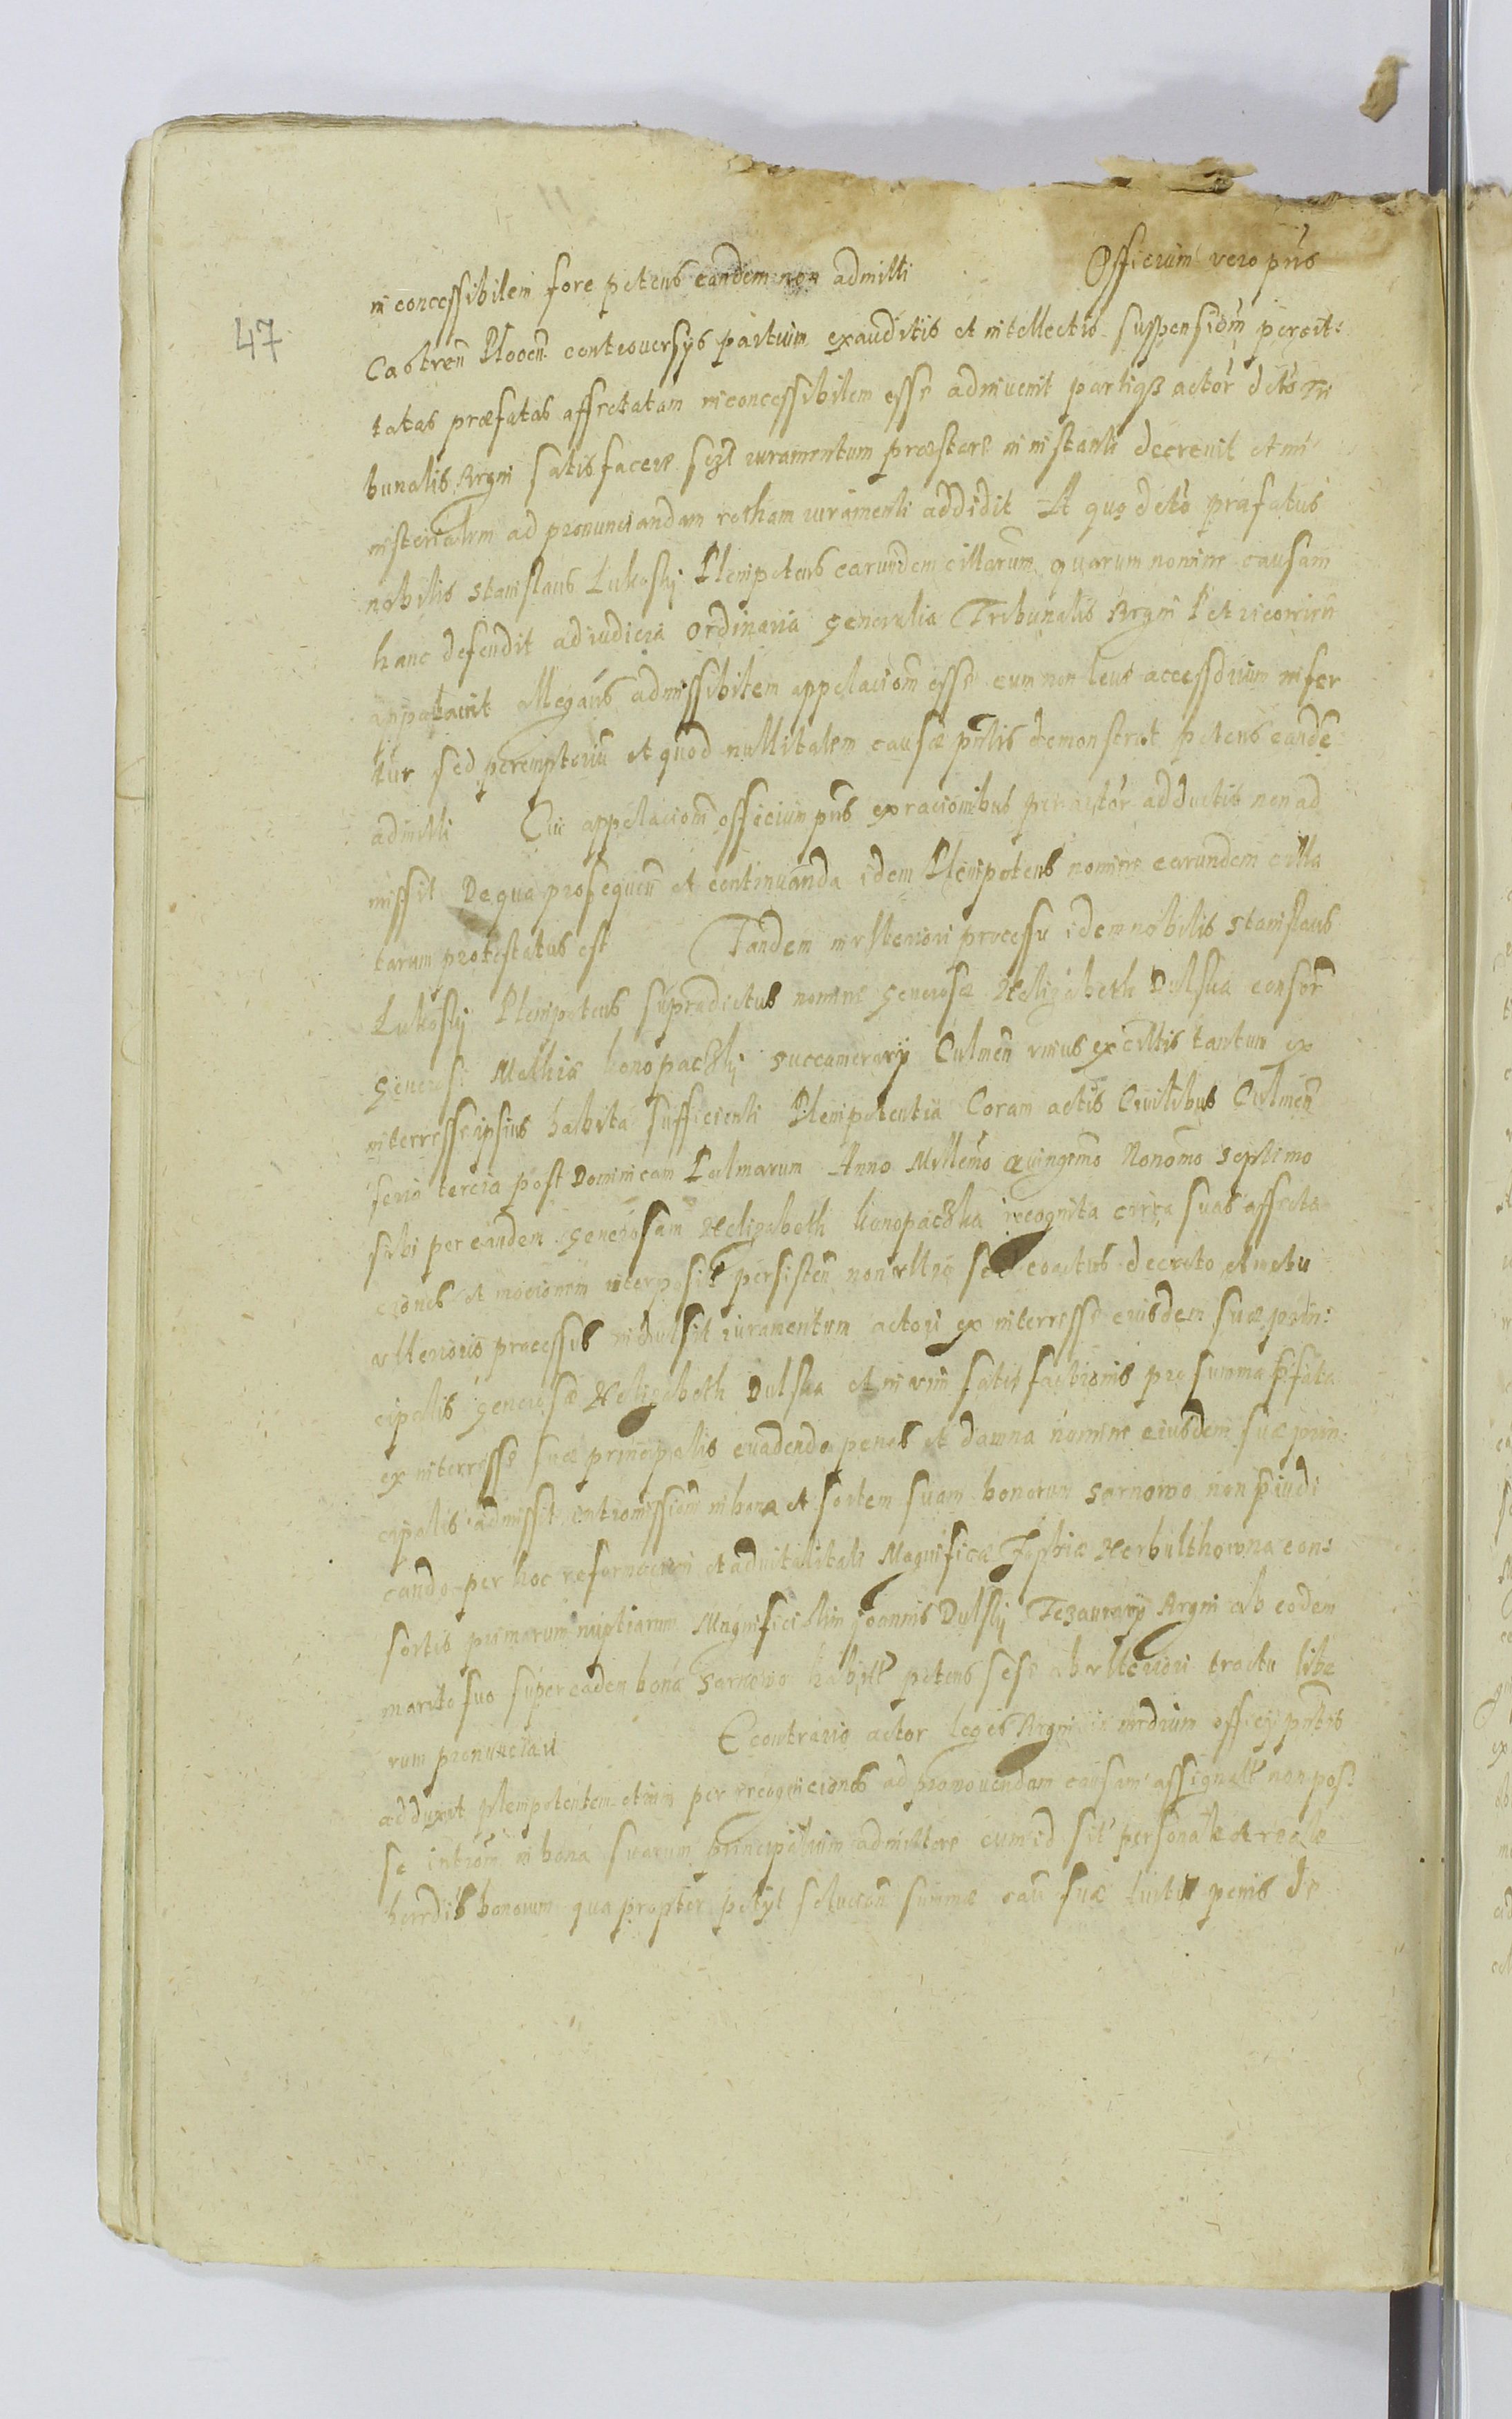 inconcessibilem fore petens eandem non admitti Officium vero pńs
47
Castreń Plocen̄ controversys partium exauditis et intellectis suspensioḿ per cit:
tatas præfatas affectatam inconcessibilem esse adinvenit partiqȝ actór̄ dctó Tri
bunalis Regni satisfacere iuramentum præstare in instanti decrevit et mi
nisterialem ad pronunciandam rotham iuramenti addidit A quo dctó præfatus
nobilis Stanislaus Lukoskj Plenipotens earundem cittatarum quarum nomine causam
hanc defendit ad iudicia ordinaria generalia Tribunalis Regni Petricovien̄
appellavit allegans admissibilem appellacioḿ esse cum non leve accessorium infer
tur sed peremptoriū et quod nullitatem causæ pn̄tis demonstrat petens eandē
admitti Cui appellacioḿ officium pn̄s ex racionibus per actór̄ adductis non ad
missit De qua prosequen̄ et continuanda idem Plenipotens nomine earundem citta
tarum protestatus est Tandem in ulteriori processu idem nobilis Stanislaus
Lukoskj Plenipotens supradictus nomine Generosæ Helizabeth Dulska consor̄
Generosi Mathiæ Konopaczkj Succamerarÿ Culmen̄ unius ex cittis tantum ex
interesse ipsius habita sufficienti Plenipotentia Coram actis Civilibus Culmen̄
feria tercia post Dominicam Palmarum Anno Millemō Quingemō Nonomō Septimo
sibi per eandem Generosam Helizabeth Konopaczka recognita circa suas affecta
ciones et mocionem interposit persisten̄ non ultro sed coactus decreto et metu
ulterioris processus indulsit iuramentum actori ex interesse eiusdem suæ prin:
cipalis Generosæ Helizabeth Dulska et in vim satisfactionis pro summa p̄fata
ex interesse suæ principalis evadendo penas et damna nomine eiusdem suæ prin:
cipalis admissit intromissioḿ in bona et sortem suam bonorum Sarnowo non p̄iudi
cando per hoc reformacioni et advitalitati Magnificæ Zophiæ Herbulthowna con:
sortis primarum nuptiarum Magnifici olim Joannis Dulskj Tezaurarÿ Regni ab eodem
marito suo super eadem bona Sarnowo habitæ petens sese ab ulteriori tractu libe
rum pronunciari E contrario actor leges Regni in medium officÿ pn̄tis
adduxit plenipotentem etiam per recogniciones ad promovendam causam assignatū non pos:
se introḿ in bona suarum principalium admittere cum id sit personale et reale
heredis bonorum qua propter petÿt solucioḿ summæ cau suæ luitis penis de